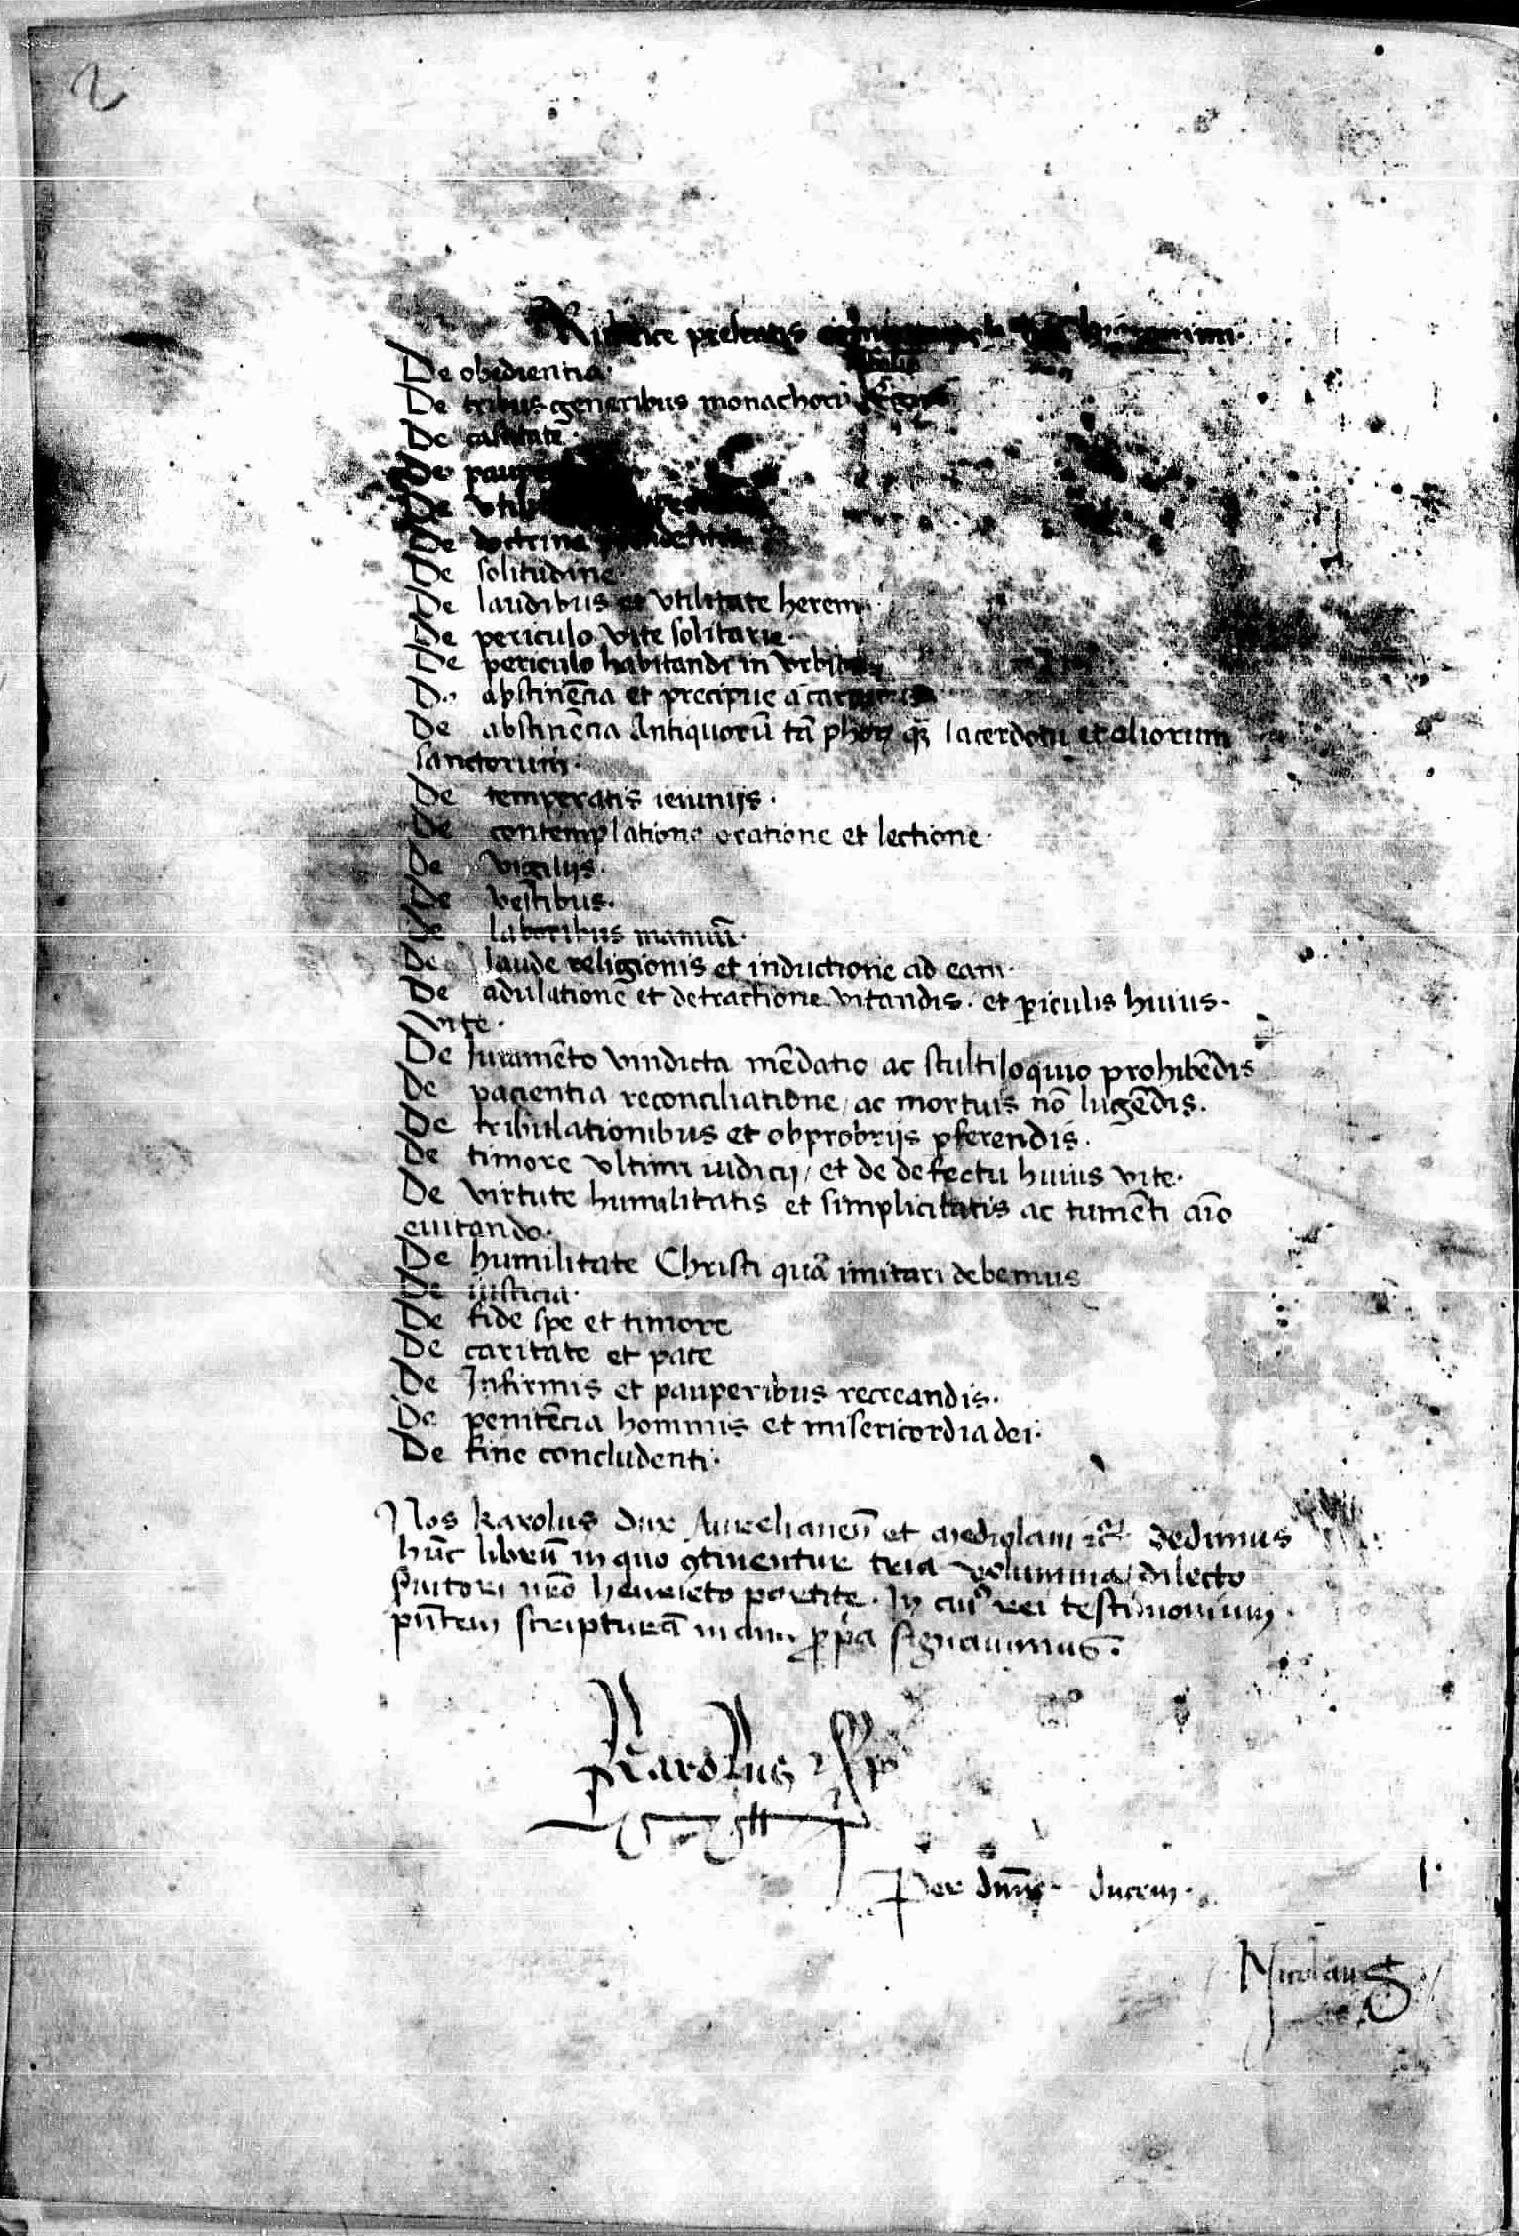 2
De obedientia.
De tribus generibus monachorū
De castitate.
De
De
De doctrina
De solitudine.
De laudibus et vtilitate heremi.
De periculo vite solitarie.
De periculo habitandi in
De abstinēcia et precipue a
De abstinēcia Antiquorū tā phorꝫ qᷓ sacerdotū et aliorum
sanctorum.
De temperatis ieiunijs.
De contemplatione oratione et lectione.
De vigilijs.
De vestibus.
De laboribus manuū.
De laude religionis et inductione ad eam.
De adulatione et detractione vitandis. et ꝑiculis huius.
vite.
De Iuramēto vindicta mēdatio ac stultiloquio prohibēdis
De pacientia reconciliatione / ac mortuis nō lugēdis.
De tribulationibus et obprobrijs ꝑferendis.
De timore vltimi iudicij / et de defectu huius vite.
De virtute humilitatis et simplicitatis ac tumēti aīo
euitando.
De humilitate Christi quā imitari debemus
De iusticia.
De fide spe et timore
De caritate et pace
De Infirmis et pauperibus recreandis.
De penitēcia hominis et misericordia dei.
De fine concludenti.
Nos karolus dux Aurelianeñ et mediolani ⁊c̃ dedimus
hūc librū in quo ꝯtinentur tria volumina / dilecto
s̃uitori nr̃o henrieto portite. In cuiꝰ rei testimonium
pñtem scripturā manu ꝓpͥa signauimus.
Karolus
Per dñm ducem.
Nicolaus